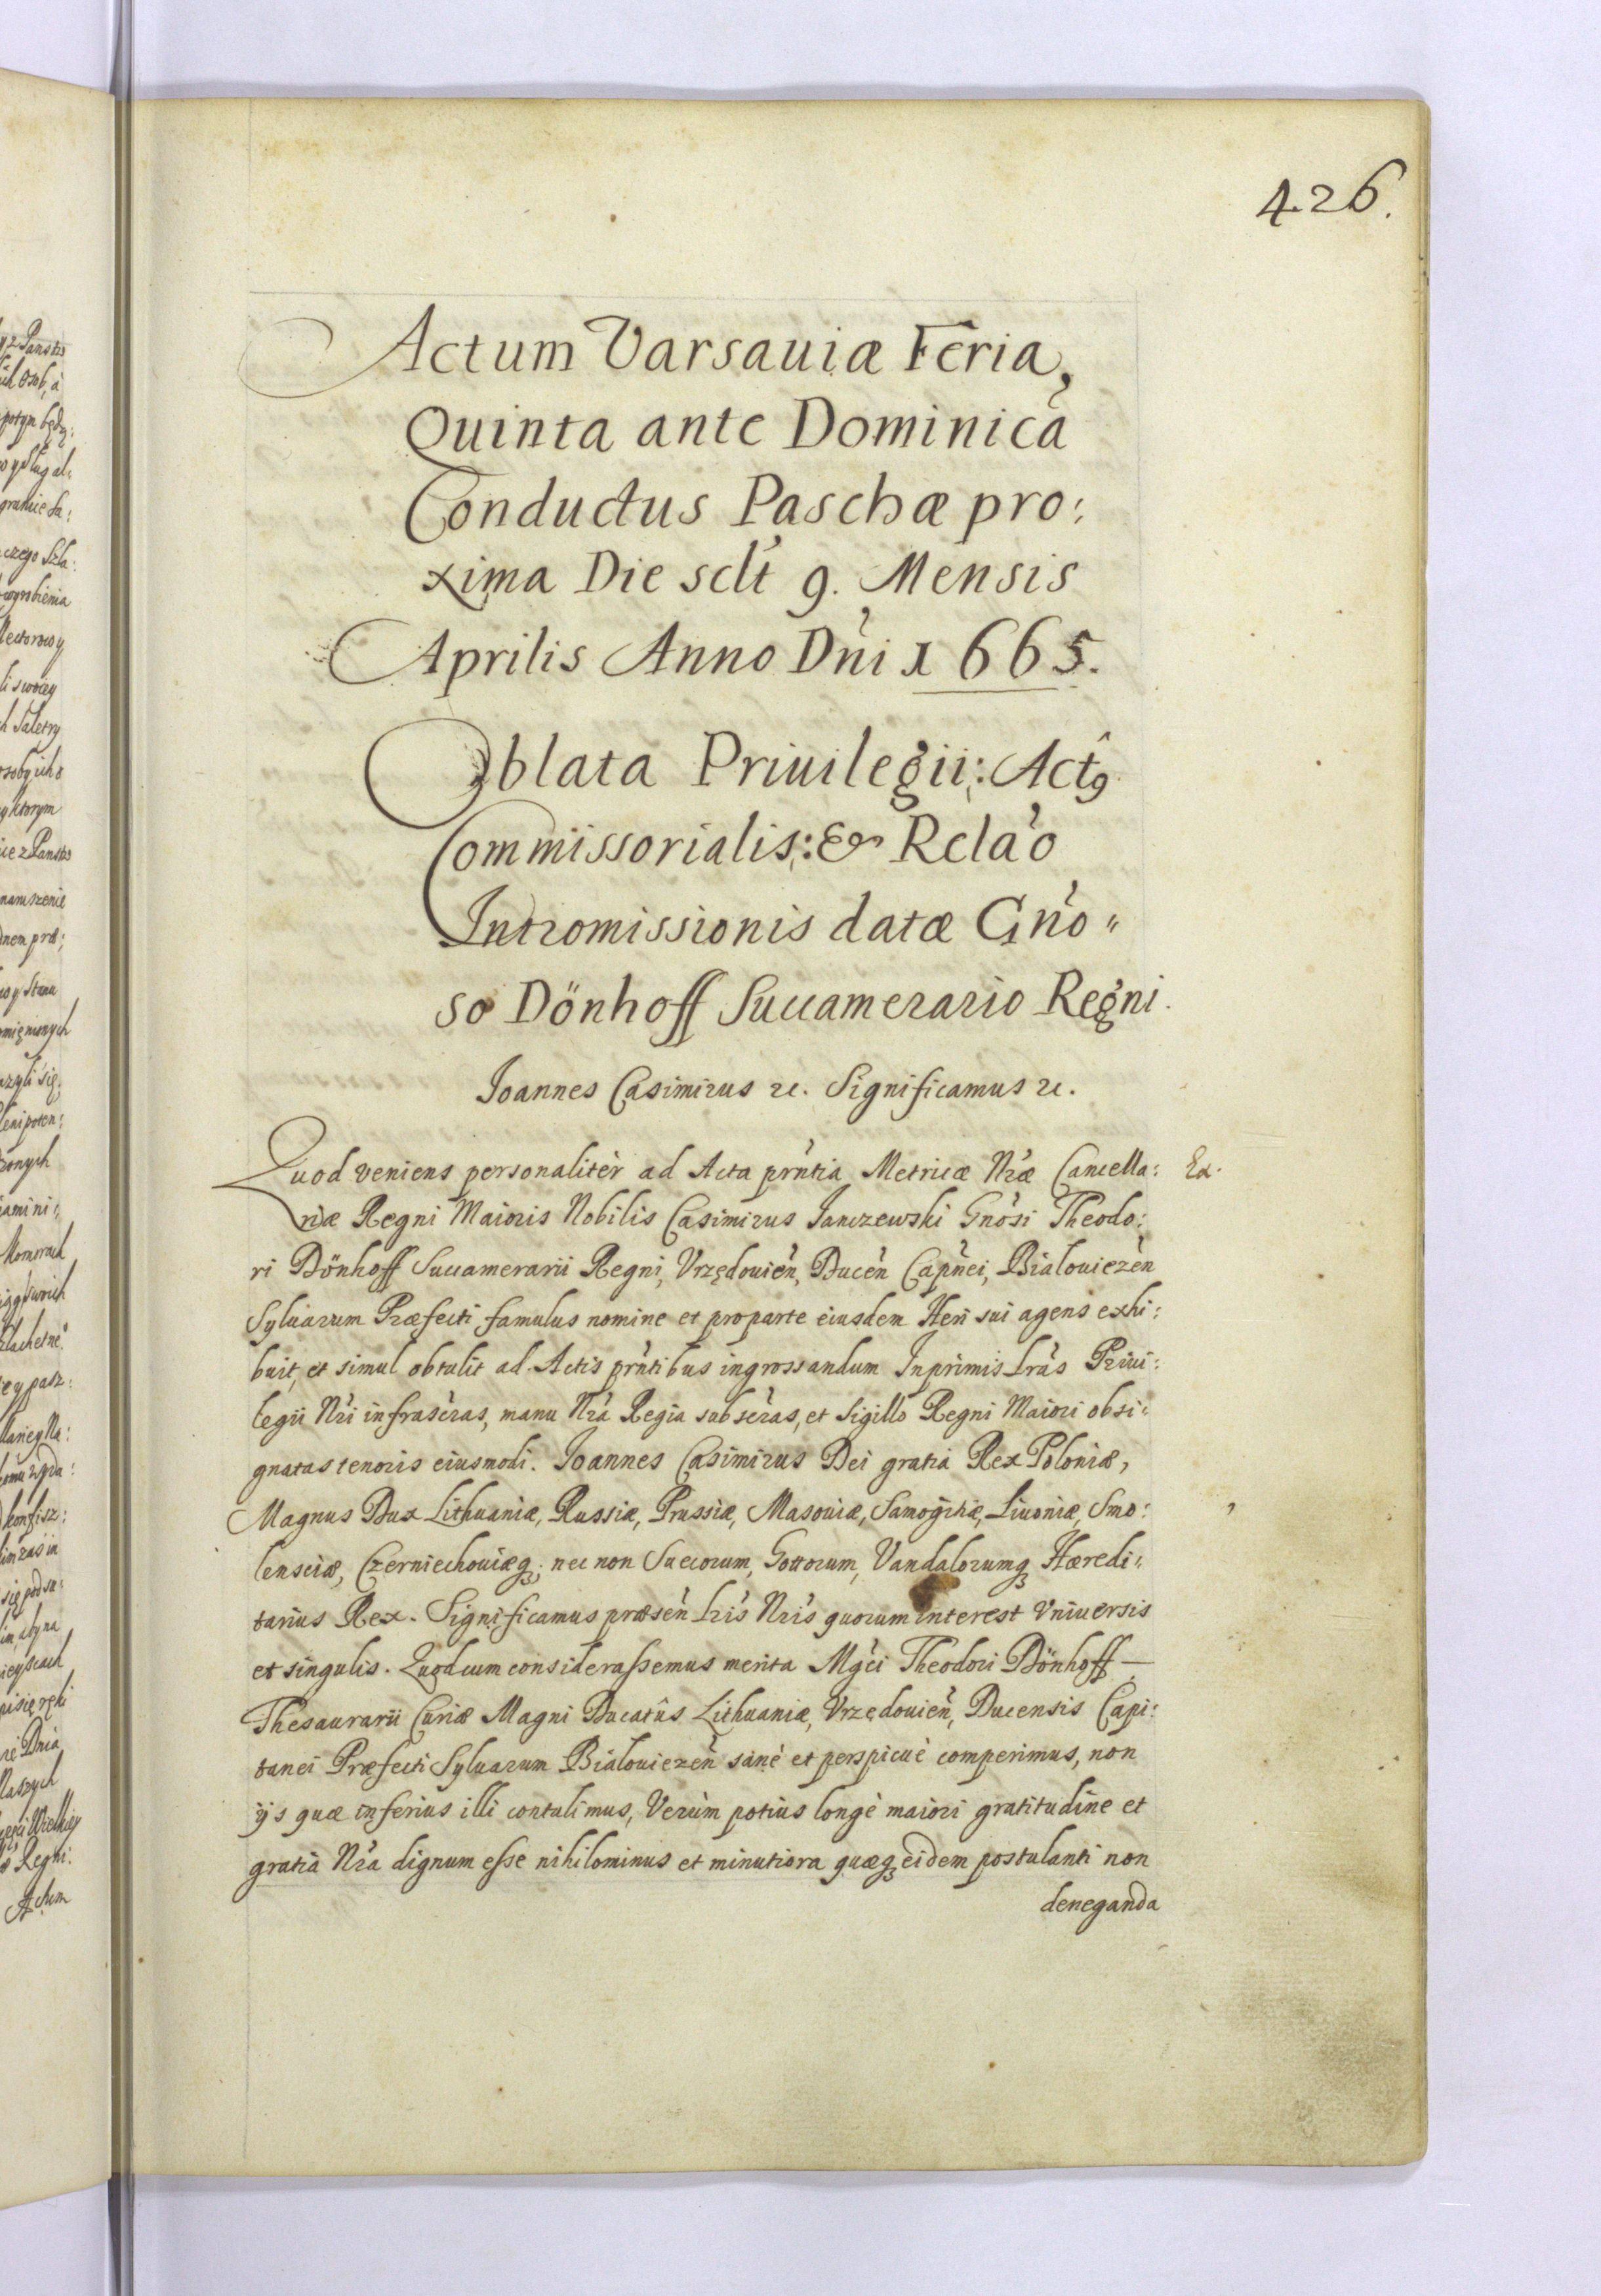 426.
Actum Varsauiæ Feria,
Quinta ante Dominicã
Conductus Paschæ pro:
xima Die sclt́ 9. Mensis
Aprilis Anno Dńi 1665.
Oblata Priuilegii: Actꝰ
Commissorialis: & Relaó
Intromissionis datæ Gńo"
so Dönhoff Succamerario Regni.
Ioannes Casimirus ꝛc. Significamus ꝛc.
Quod veniens personalitèr ad Acta prńtia Metricæ Nrǽ Cancella: Ex.
riæ Regni Maioris Nobilis Casimirus Janczewski Gnósi Theodo:
ri Dönhoff Succamerarii Regni, Vrzędouień, Duceń Capńei, Bialouiezeń
Syluarum Præfecti famulus nomine et pro parte eiusdem Heri sui agens exhi:
buit, et simul obtulit ad Actis prńtibus ingrossandum Inprimis Lrás Priui:
legii Nrí infrascŕas, manu Nrá Regia subscŕas, et Sigillo Regni Maiori obsi:
gnatas tenoris eiusmodi. Joannes Casimirus Dei gratia Rex Poloniæ,
Magnus Dux Lithuaniæ, Russiæ, Prussiæ, Masouiæ, Samogitiæ, Liuoniæ, Smo:
lensciæ, Czerniechouiæqꝫ; nec non Suecorum, Gottorum, Vandalorumqꝫ Hæredi:
tarius Rex. Significamus præseń Lrís Nrís quorum interest Vniuersis
et singulis. Quod cum considerassemus merita Mgći Theodori Dönhoff —
Thesaurarii Curiæ Magni Ducatûs Lithuaniæ, Vrzędouień, Ducensis Capi:
tanei Præfecti Syluarum Bialouiezeń sanè et perspicuè comperimus, non
ijs quæ inferius illi contulimus, Verùm potiùs longè maiori gratitudine et
gratia Nrá dignum esse nihilominus et minutiora quæqꝫ eidem postulanti non
deneganda